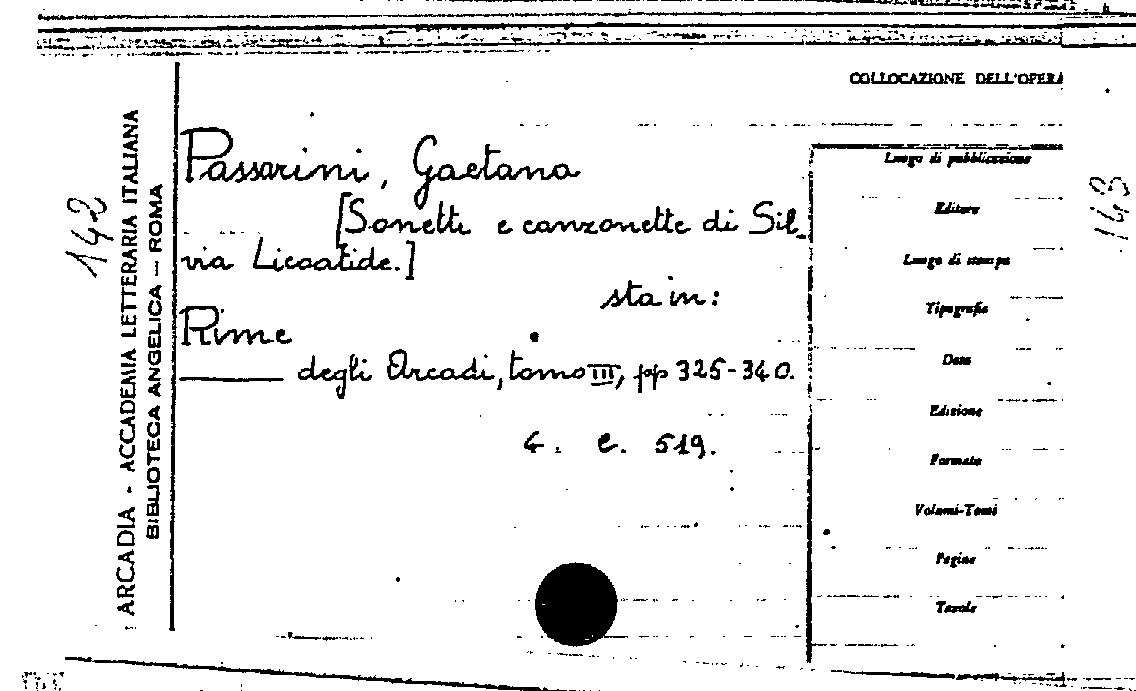 COLLOCAZIONE DELL'OPERA
142
ARCADIA - ACCADEMIA LETTERARIA ITALIANA
BIBLIOTECA ANGELICA — ROMA
Passarini, Gaetana
[Sonetti e canzonette di Sil-
via Licoatide.]
sta in:
Rime
——— degli Arcadi, tomo III, pp 325-340.
4. e. 519.
Luogo di pubblicazione
Editore
Luogo di stampa
Tipografia
Data
Edizione
Formato
Volumi-Tomi
Pagine
Tavole
143